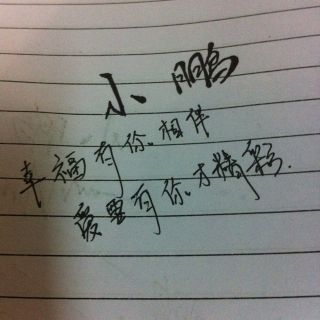 小鹏
幸福有你.相伴
爱里有你.才精彩.